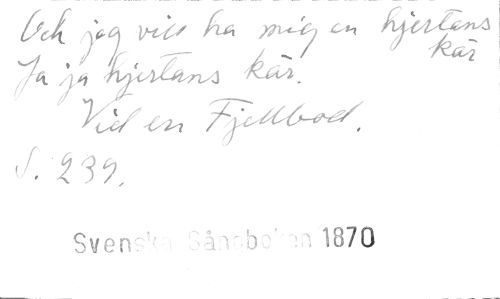 Och jag vill ha mig en hjertans
kär
Ja ja hjertans kär.
Vid en Fjellbod.
S. 239.
Svenska Sångboken 1870